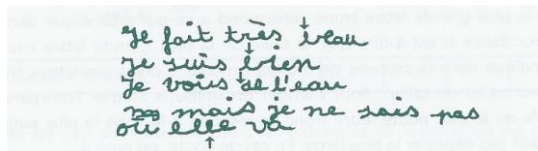 Je fait très beau
je suis bien
je vois de l'eau
mais je ne sais pas
où elle va